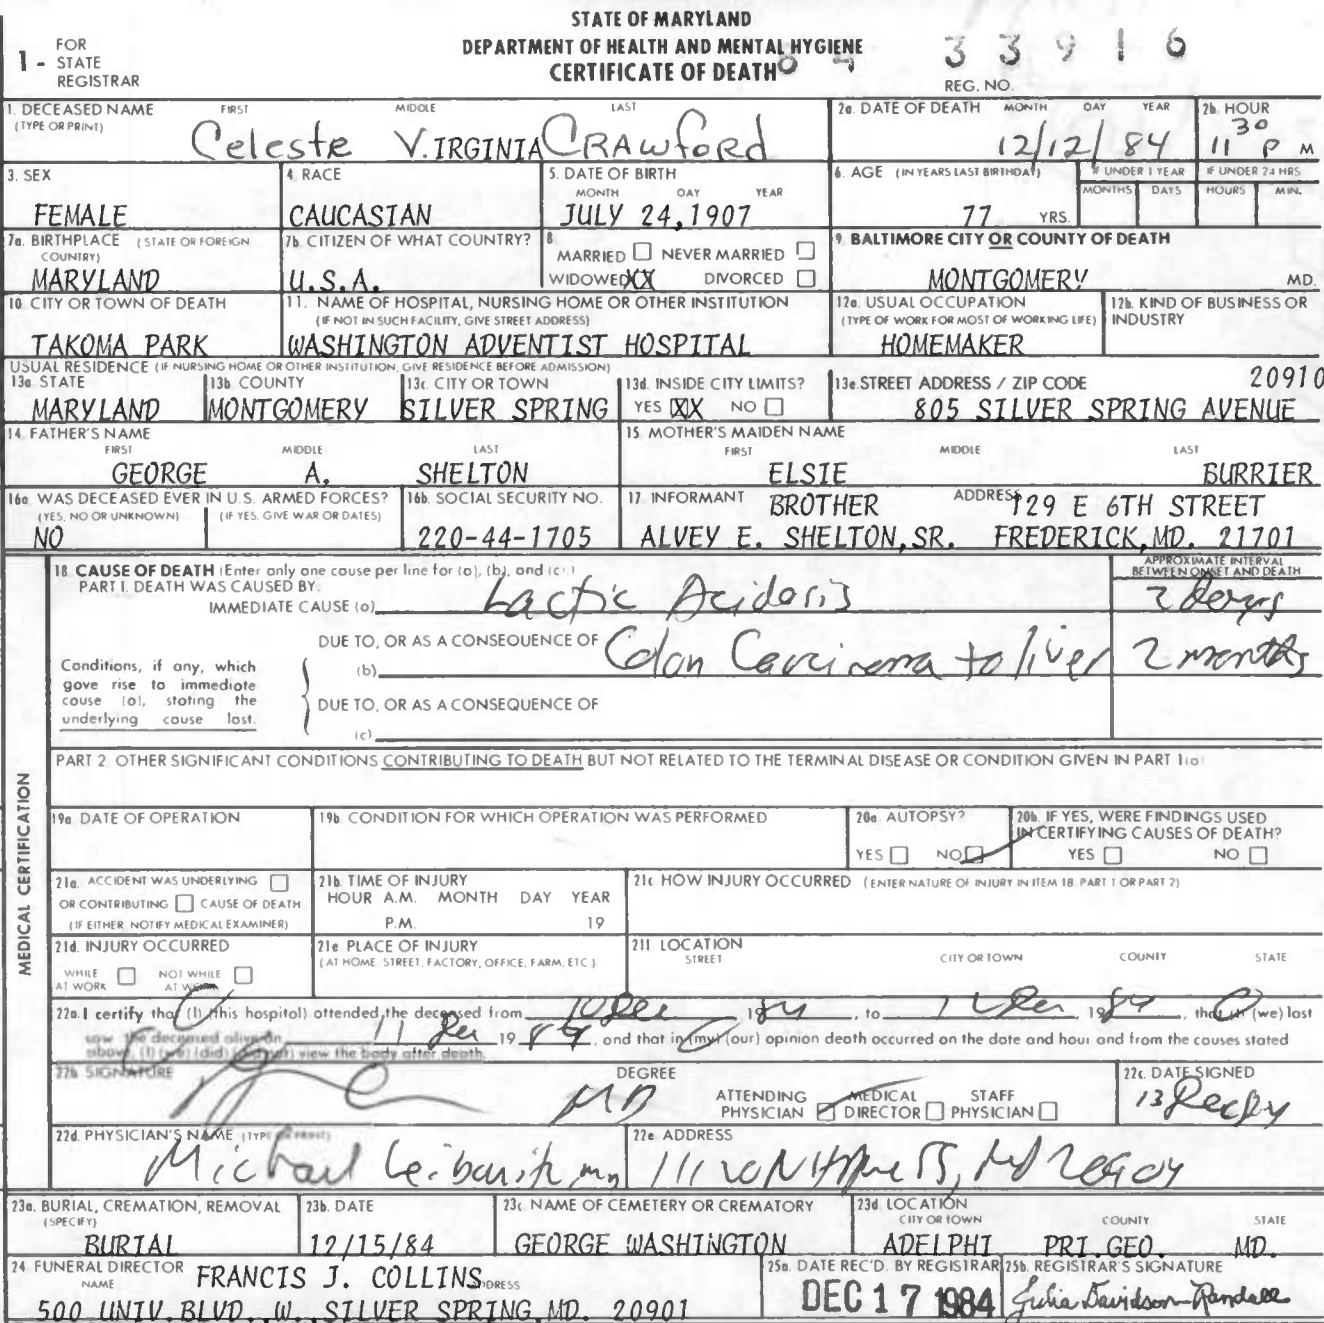 STATE OF MARYLAND
DEPARTMENT OF HEALTH AND MENTAL HYGIENE
CERTIFICATE OF DEATH
1 - FOR STATE REGISTRAR
84 33916
REG. NO.
1. DECEASED NAME (TYPE OR PRINT) FIRST MIDDLE LAST
Celeste V.IRGINIA CRAWFORD
2a. DATE OF DEATH MONTH DAY YEAR
12/12/84
2b. HOUR
11 30 P M
3. SEX
FEMALE
4. RACE
CAUCASIAN
5. DATE OF BIRTH MONTH DAY YEAR
JULY 24,1907
6. AGE (IN YEARS LAST BIRTHDAY)
77 YRS.
IF UNDER 1 YEAR MONTHS DAYS
IF UNDER 24 HRS HOURS MIN.
7a. BIRTHPLACE (STATE OR FOREIGN COUNTRY)
MARYLAND
7b. CITIZEN OF WHAT COUNTRY?
U.S.A.
8. MARRIED NEVER MARRIED
WIDOWED XX DIVORCED
9. BALTIMORE CITY OR COUNTY OF DEATH
MONTGOMERY MD.
10. CITY OR TOWN OF DEATH
TAKOMA PARK
11. NAME OF HOSPITAL, NURSING HOME OR OTHER INSTITUTION
(IF NOT IN SUCH FACILITY, GIVE STREET ADDRESS)
WASHINGTON ADVENTIST HOSPITAL
12a. USUAL OCCUPATION
(TYPE OF WORK FOR MOST OF WORKING LIFE)
HOMEMAKER
12b. KIND OF BUSINESS OR INDUSTRY
USUAL RESIDENCE (IF NURSING HOME OR OTHER INSTITUTION, GIVE RESIDENCE BEFORE ADMISSION)
13a STATE
MARYLAND
13b COUNTY
MONTGOMERY
13c. CITY OR TOWN
SILVER SPRING
13d. INSIDE CITY LIMITS?
YES XX NO
13e. STREET ADDRESS / ZIP CODE
20910
805 SILVER SPRING AVENUE
14. FATHER'S NAME FIRST MIDDLE LAST
GEORGE A. SHELTON
15 MOTHER'S MAIDEN NAME FIRST MIDDLE LAST
ELSIE BURRIER
16a WAS DECEASED EVER IN U.S. ARMED FORCES?
(YES, NO OR UNKNOWN) (IF YES, GIVE WAR OR DATES)
NO
16b. SOCIAL SECURITY NO.
220-44-1705
17 INFORMANT BROTHER ADDRESS 129 E 6TH STREET
ALVEY E. SHELTON,SR. FREDERICK,MD. 21701
MEDICAL CERTIFICATION
18 CAUSE OF DEATH (Enter only one cause per line for (a), (b), and (c).)
PART I. DEATH WAS CAUSED BY:
APPROXIMATE INTERVAL BETWEEN ONSET AND DEATH
IMMEDIATE CAUSE (a) Lactic Acidosis 2 days
Conditions, if any, which gave rise to immediate cause (a), stating the underlying cause last.
DUE TO, OR AS A CONSEQUENCE OF
(b) Colon Carcinoma to liver 2 months
DUE TO, OR AS A CONSEQUENCE OF
(c)
PART 2 OTHER SIGNIFICANT CONDITIONS CONTRIBUTING TO DEATH BUT NOT RELATED TO THE TERMINAL DISEASE OR CONDITION GIVEN IN PART 1(a)
19a DATE OF OPERATION
19b CONDITION FOR WHICH OPERATION WAS PERFORMED
20a AUTOPSY?
YES NO
20b. IF YES, WERE FINDINGS USED IN CERTIFYING CAUSES OF DEATH?
YES NO
21a. ACCIDENT WAS UNDERLYING
OR CONTRIBUTING CAUSE OF DEATH
(IF EITHER NOTIFY MEDICAL EXAMINER)
21b. TIME OF INJURY
HOUR A.M. MONTH DAY YEAR
P.M. 19
21c HOW INJURY OCCURRED (ENTER NATURE OF INJURY IN ITEM 18 PART 1 OR PART 2)
21d. INJURY OCCURRED
WHILE AT WORK NOT WHILE AT WORK
21e PLACE OF INJURY
(AT HOME, STREET, FACTORY, OFFICE, FARM, ETC.)
21f LOCATION STREET CITY OR TOWN COUNTY STATE
22a. I certify that (I) (this hospital) attended the deceased from 10 Dec 1984, to 12 Dec 1984, that (I) (we) last
saw the deceased alive on 11 Dec 1984, and that in (my) (our) opinion death occurred on the date and hour and from the causes stated
above, (I) (we) (did) (did not) view the body after death.
22b SIGNATURE
DEGREE
MD
ATTENDING PHYSICIAN MEDICAL DIRECTOR STAFF PHYSICIAN
22c. DATE SIGNED
13 Dec 84
22d. PHYSICIAN'S NAME (TYPE OR PRINT)
Michael
22e ADDRESS
23a. BURIAL, CREMATION, REMOVAL (SPECIFY)
BURIAL
23b. DATE
12/15/84
23c NAME OF CEMETERY OR CREMATORY
GEORGE WASHINGTON
23d LOCATION CITY OR TOWN COUNTY STATE
ADELPHI PRI.GEO. MD.
24 FUNERAL DIRECTOR
NAME FRANCIS J. COLLINS ADDRESS
500 UNIV.BLVD.,W.,SILVER SPRING,MD. 20901
25a. DATE REC'D. BY REGISTRAR
DEC 17 1984
25b. REGISTRAR'S SIGNATURE
Julia Davidson-Randall